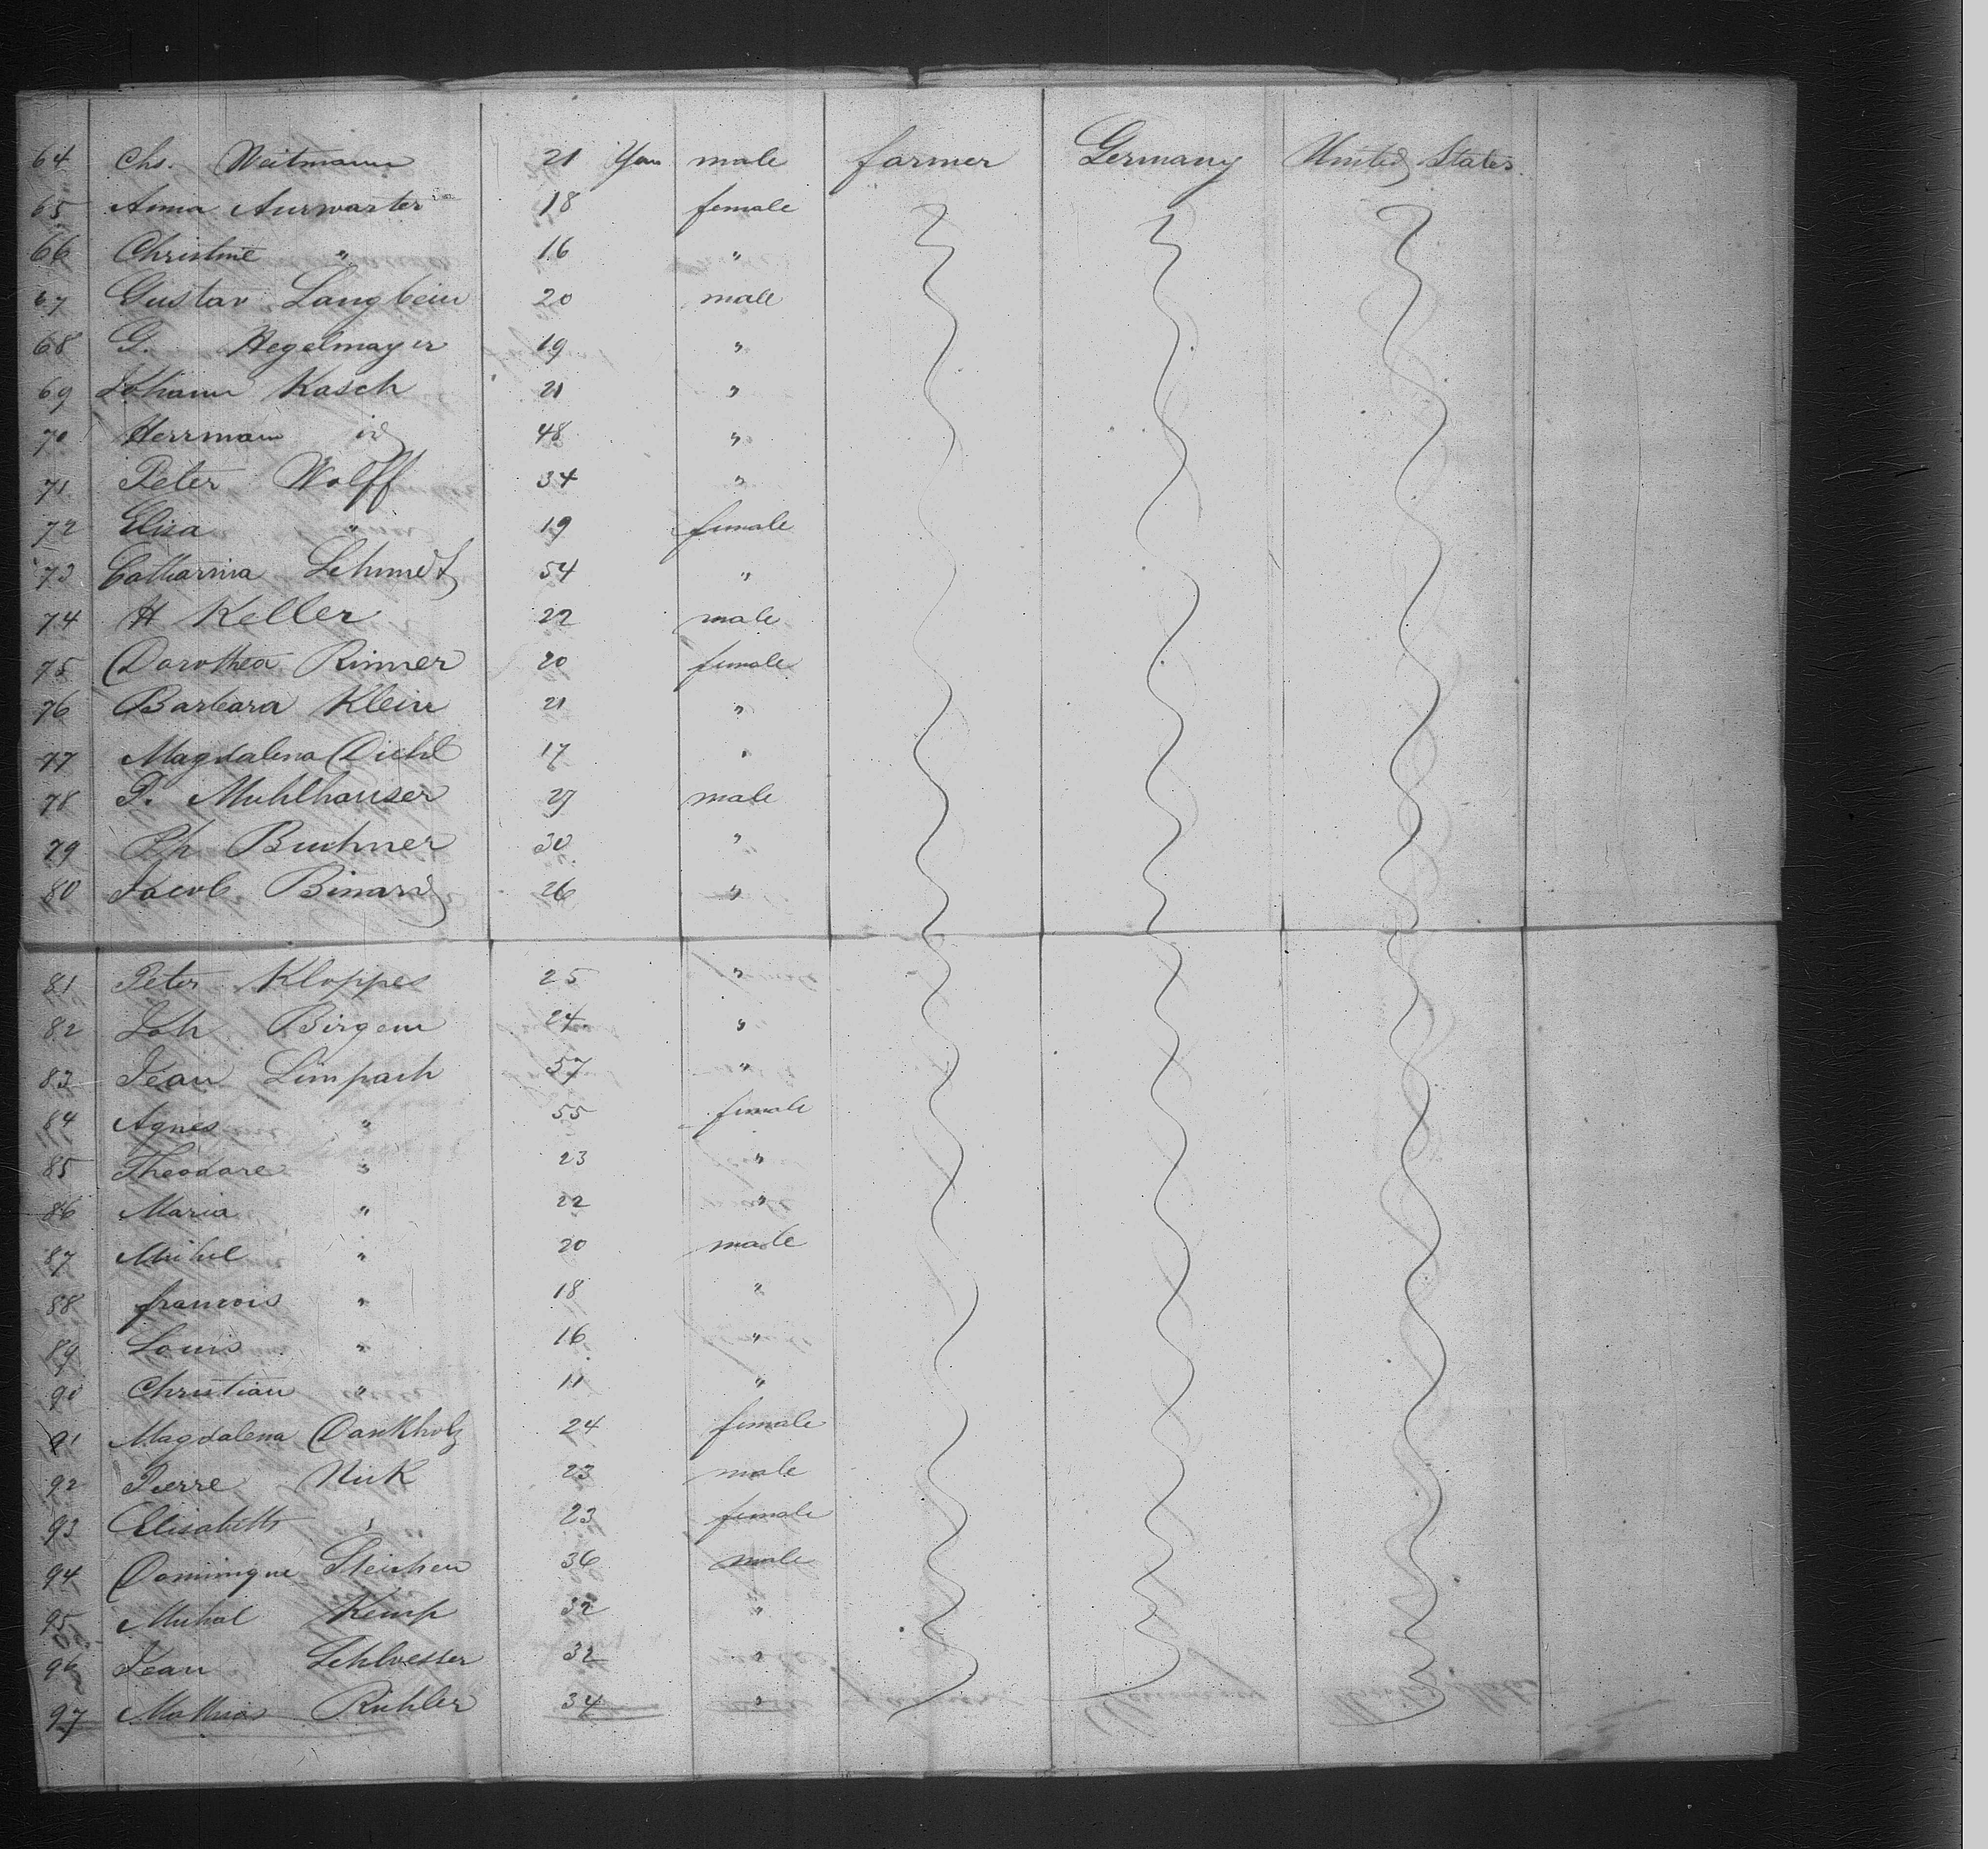 64 Chs. Weitmann 21 Years male farmer Germany United States
65 Anna Aurwarter 18 female
66 Christine " 16 "
67 Gustav Langbein 20 male
68 G. Hegelmayer 19 "
69 Johann Kasch 21 "
70 Herrman id 48 "
71 Peter Wolff 34 "
72 Elisa " 19 female
73 Catharina Schmidt 54 "
74 H Keller 22 male
75 Dorothea Rinner 20 female
76 Barbara Klein 21 "
77 Magdalena Diehl 17 "
78 P. Muhlhauser 27 male
79 Ph Buchner 30 "
80 Jacob Binard 26 "
81 Peter Kloppes 25 "
82 Joh Birgem 24 "
83 Jean Limpach 57 "
84 Agnes " 55 female
85 Theodore " 23 "
86 Maria " 22 "
87 Michel " 20 male
88 francois " 18 "
89 Louis " 16 "
90 Christian " 11 "
91 Magdalena Dankholz 24 female
92 Pierre Nick 23 male
93 Elisabeth " 23 female
94 Dominique Steichen 36 male
95 Michal Kemp 32 "
96 Jean Schloesser 32 "
97 Mathias Richler 34 "